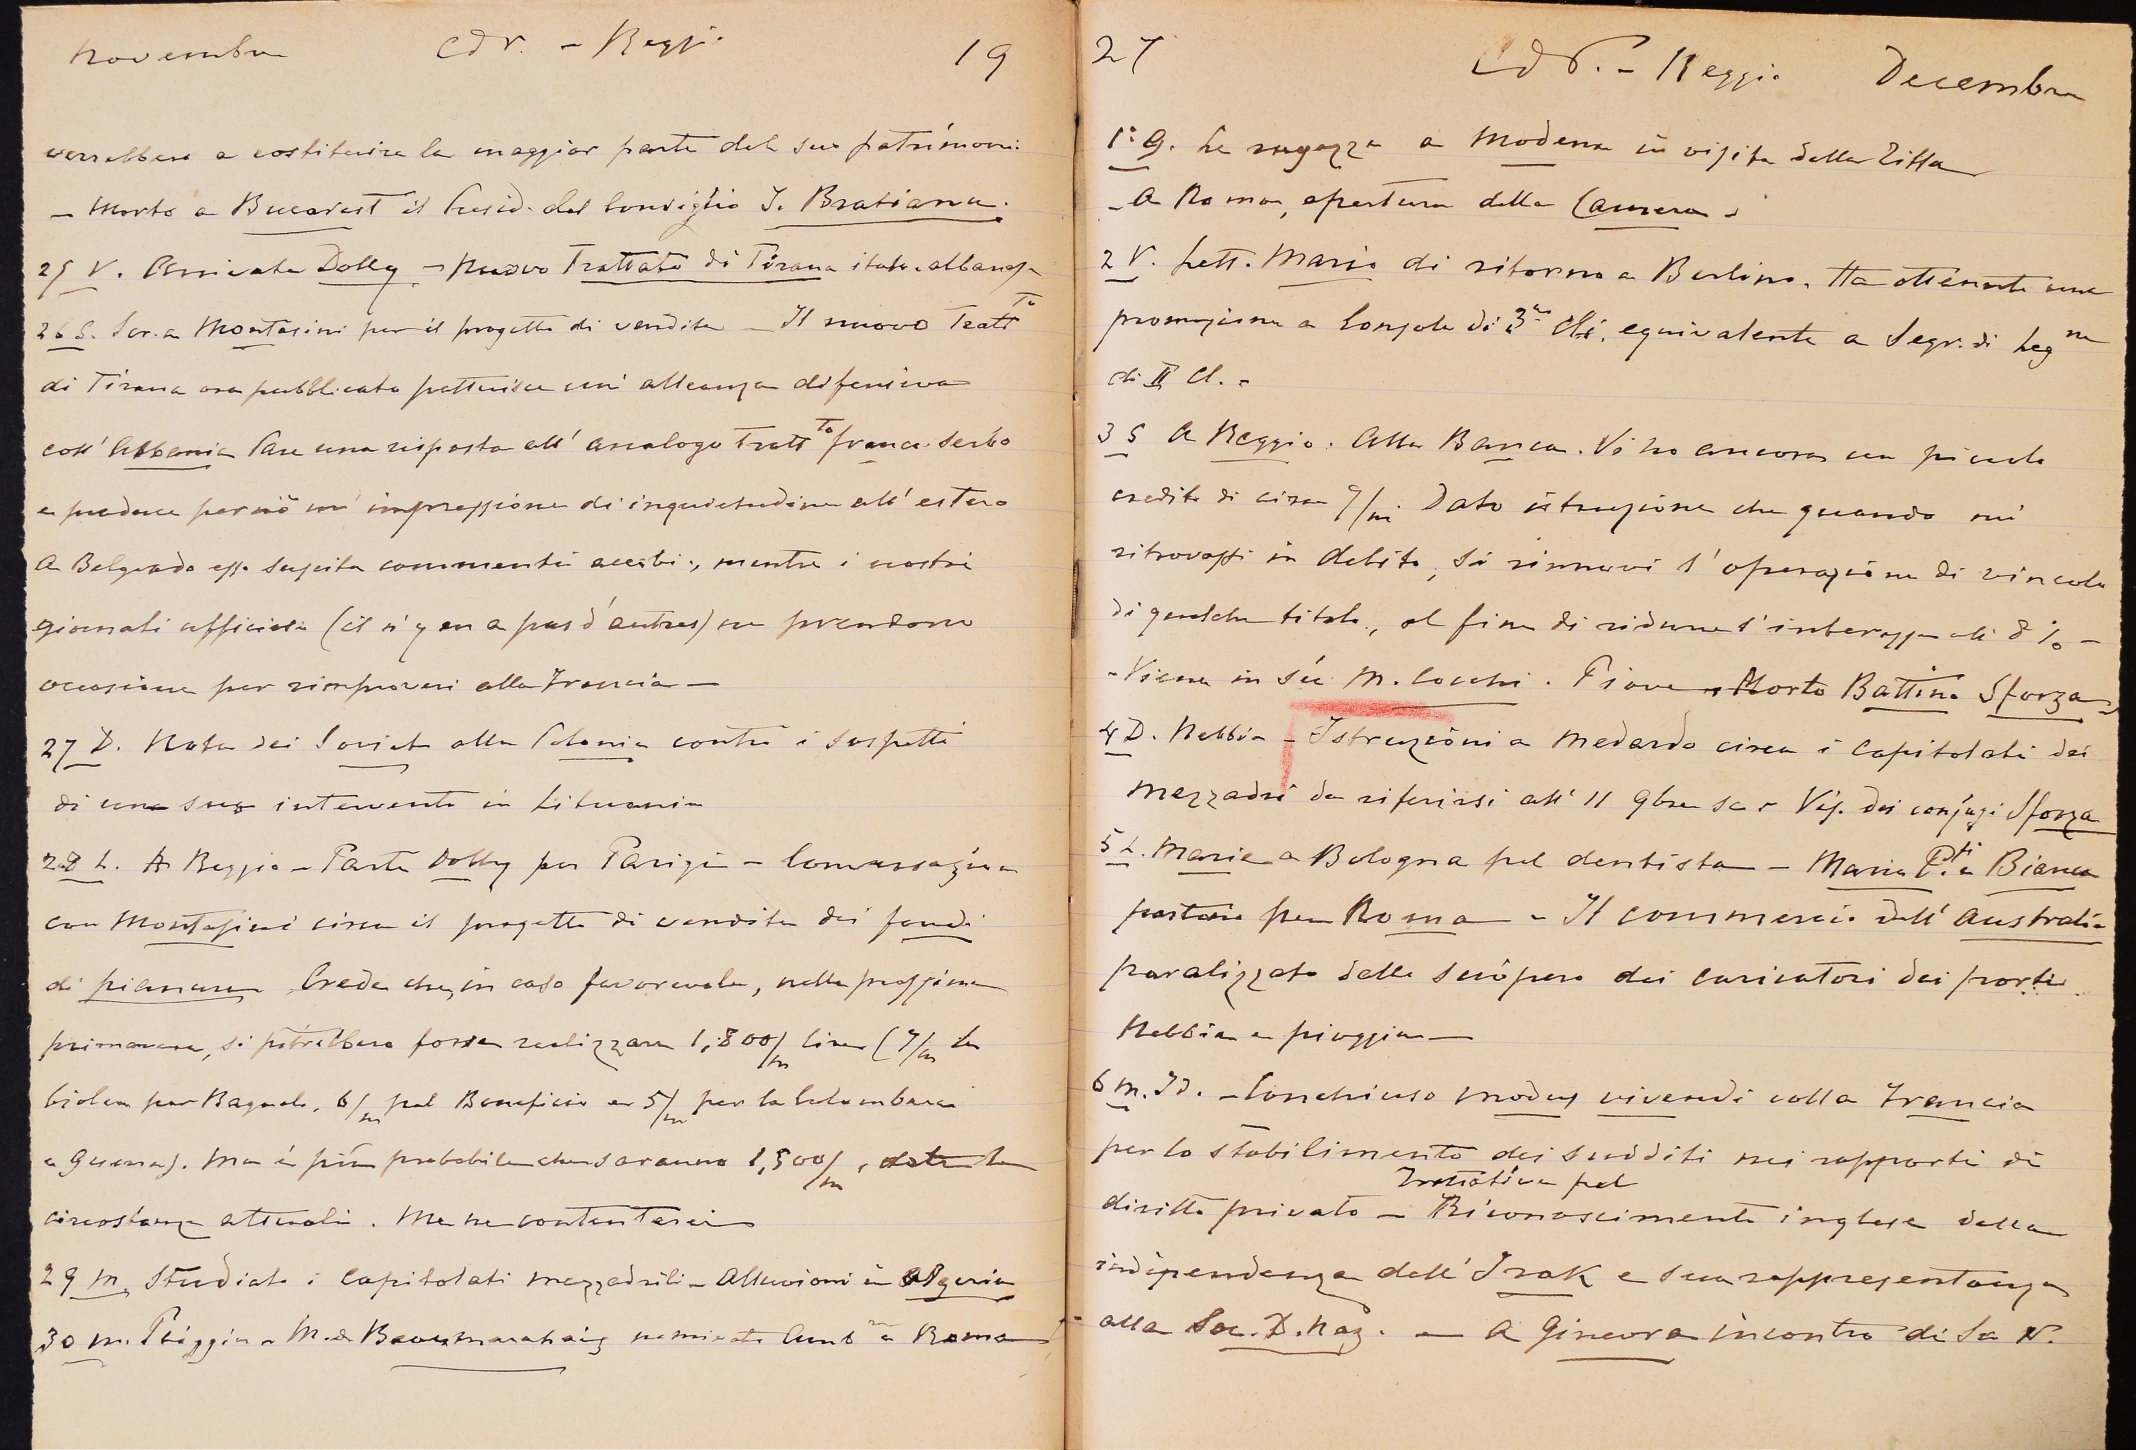 Novembre Cdr. - Reggio 19
verrebbero a costituire la maggior parte del suo patrimonio.
- Morto a Bucarest il Presid. del Consiglio J. Bratianu.
25 V. Arrivata Dolly - Nuovo Trattato di Tirana italo-albanese
26 S. Scr. a Montesini per il progetto di vendita - Il nuovo Tratt.to
di Tirana ora pubblicato pattuisce un'alleanza difensiva
coll'Albania. Pare una risposta all'analogo Tratt.to franco-serbo
e produce perciò un'impressione di inquietudine all'estero
A Belgrado esso suscita commenti acerbi, mentre i nostri
giornali ufficiosi (il n'y en a pas d'autres) ne prendono
occasione per rimproveri alla Francia -
27 D. Nota dei Soviet alla Polonia contro i sospetti
di una suo intervento in Lituania
28 L. A Reggio - Parte Dolly per Parigi - Conversazione
con Montesini circa il progetto di vendita dei fondi
di pianura. Crede che, in caso favorevole, nella prossima
primavera, si potrebbero forse realizzare 1,800/m lire (7/m la
biolca per Bagnolo, 6/m pel Beneficio e 5/m per la Colombaia
e Guerra). Ma è più probabile che saranno 1,500/m, date le
circostanze attuali. Me ne contenterei
29 M. Studiato i Capitolati mezzadrili - Alluvioni in Algeria
30 M. Pioggia - M. de Beaumarchais nominato Amb.re a Roma
27 Cdr. - Reggio Decembre
1° G. Le ragazze a Modena in visita dalla Zitta
- A Roma, apertura della Camera -
2 V. Lett. Mario di ritorno a Berlino. Ha ottenuto una
promozione a Console di 3a Cl., equivalente a Segr. di Leg.ne
di II Cl. -
3 S A Reggio. Alla Banca. Vi ho ancora un piccolo
credito di circa 9/m. Dato istruzione che quando mi
ritrovassi in debito, si rinnovi l'operazione di vincolo
di qualche titolo, al fine di ridurre l'interesse all' 8% -
- Viene in sú M. Cocchi. Piove - Morto Battino Sforza -
4 D. Nebbia - Istruzioni a Medardo circa i Capitolati dei
mezzadri da riferirsi all'11 9bre sc. - Vis. dei conjugi Sforza
5 L. Maria a Bologna pel dentista - Maria P.ti e Bianca
partono per Roma - Il commercio dell'Australia
paralizzato dallo sciopero dei caricatori dei porti.
Nebbia e pioggia -
6 M. Id. - Conchiuso modus vivendi colla Francia
per lo stabilimento dei sudditi nei rapporti di
Trattativa pel
diritto privato - Riconoscimento inglese della
indipendenza dell'Irak e sua rappresentanza
alla Soc. D. Naz. - A Ginevra incontro di la N.